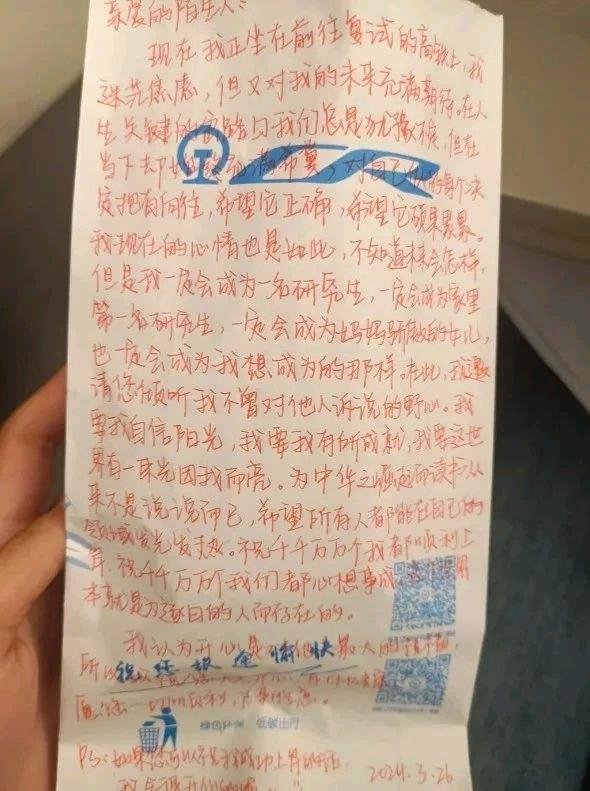 亲爱的陌生人：
现在我正坐在前往复试的高铁上，我
迷茫焦虑，但又对我的未来充满期待。在人
生关键的分路口我们总是犹豫不侯，但在
当下却始终充满希冀，对自己做的每个决
定抱有向往，希望它正确，希望它硕果累累。
我现在的心情也是如此，不知道未来会怎样，
但是我一定会成为一名研究生，一定会成为家里
第一名研究生，一定会成为妈妈骄傲的女儿，
也一定会成为我想成为的那样。在此，我邀
请您倾听我不曾对他人诉说的野心。我
要我自信阳光，我要我有所成就，我要这世
界有一束光因我而亮。为中华之崛起而读书从
来不是说说而已，希望所有人都能在自己的
领域发光发热。祝千千万万个我都顺利上
岸，祝千千万万个我们都心想事成。
本就是为逐日的人而存在的。
我认为开心是对他人最大的祝福，
所以
祝您旅途愉快
愿您一切顺利，
绿色环保 低碳出行
PS：如果您可以祝我成功上岸的话
我会很开心的
2024.3.26